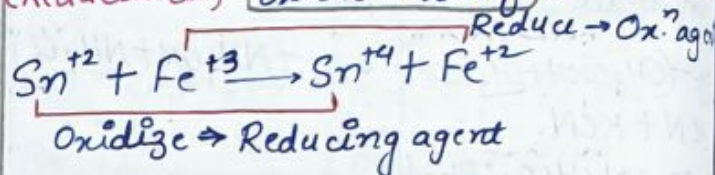 Reduce → Ox.ⁿ age
Sn⁺² + Fe⁺³ ⟶ Sn⁺⁴ + Fe⁺²
Oxidize ⇒ Reducing agent